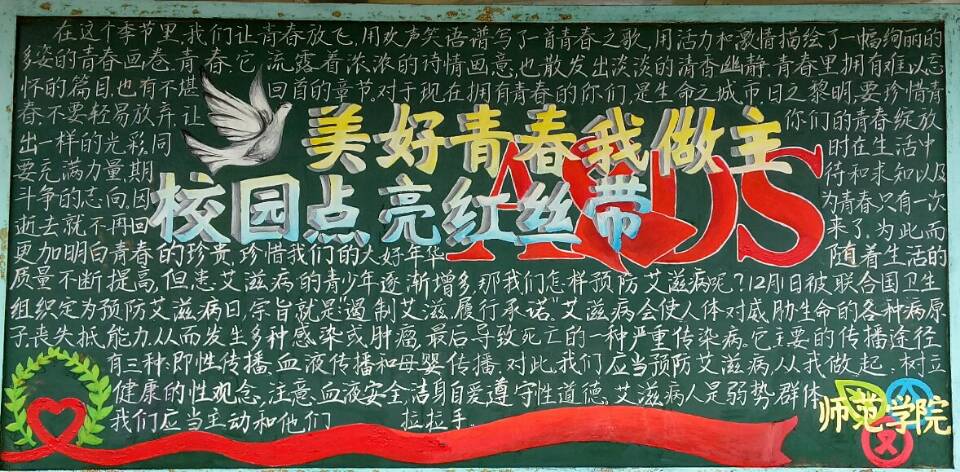 在这个季节里,我们让青春放飞,用欢声笑语谱写了一首青春之歌,用活力和激情描绘了一幅绚丽的
多姿的青春画卷.青春它流露着浓浓的诗情画意,也散发出淡淡的清香幽静.青春里拥有难以忘
怀的篇目,也有不堪回首的章节。对于现在拥有青春的你们,是生命之城市日之黎明,要珍惜青
春不要轻易放弃,让你们的青春绽放
出一样的光彩,同时在生活中
要充满力量,期待和求知以及
斗争的志向,因为青春只有一次
逝去就不再回来了,为此而
更加明白青春的珍贵,珍惜我们的大好年华 随着生活的
质量不断提高,但患艾滋病的青少年逐渐增多,那我们怎样预防艾滋病呢?12月1日被联合国卫生
组织定为预防艾滋病日,宗旨就是"遏制艾滋,履行承诺".艾滋病会使人体对威胁生命的各种病原
子丧失抵能力,从而发生多种感染或肿瘤,最后导致死亡的一种严重传染病。它主要的传播途径
有三种:即性传播,血液传播和母婴传播.对此,我们应当预防艾滋病,从我做起:树立
健康的性观念,注意血液安全,洁身自爱,遵守性道德,艾滋病人是弱势群体
我们应当主动和他们 拉拉手。
美好青春我做主
校园点亮红丝带
AIDS
师范学院